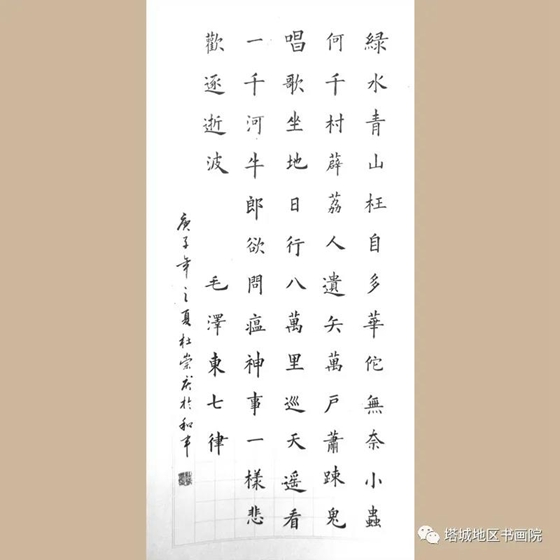 緑水青山枉自多華佗無奈小蟲
何千村薜荔人遺矢萬戶蕭踈鬼
唱歌坐地日行八萬里巡天遥看
一千河牛郎欲問瘟神事一樣悲
歡逐逝波 毛澤東七律
庚子年之夏杜崇於和平
塔城地区书画院